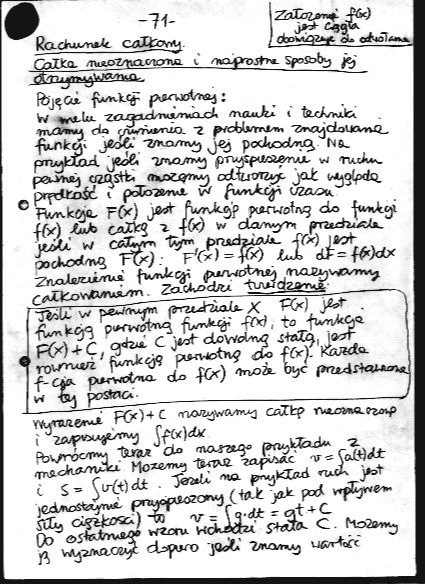 -71-
Założenie f(x)
jest ciągła
obowiązuje do odwołania
Rachunek całkowy.
Całka nieoznaczona i najprostsze sposoby jej
otrzymywania
Pojęcie funkcji pierwotnej:
W wielu zagadnieniach nauki i techniki
mamy do czynienia z problemem znajdowania
funkcji jeśli znamy jej pochodną. Na
przykład jeśli znamy przyspieszenie w ruchu
pewnej cząstki możemy odtworzyć jak wygląda
prędkość i położenie w funkcji czasu.
Funkcja F(x) jest funkcją pierwotną do funkcji
f(x) lub całką z f(x) w danym przedziale
jeśli w całym tym przedziale f(x) jest
pochodną F(x). F'(x) = f(x) lub dF = f(x)dx
Znalezienie funkcji pierwotnej nazywamy
całkowaniem. Zachodzi twierdzenie:
Jeśli w pewnym przedziale X F(x) jest
funkcją pierwotną funkcji f(x), to funkcja
F(x) + C, gdzie C jest dowolną stałą, jest
również funkcją pierwotną do f(x). Każda
f-cja pierwotna do f(x) może być przedstawiona
w tej postaci.
Wyrażenie F(x) + C nazywamy całką nieoznaczoną
i zapisujemy ∫f(x)dx.
Powróćmy teraz do naszego przykładu z
mechaniki Możemy teraz zapisać v = ∫a(t)dt
i S = ∫v(t)dt. Jeżeli na przykład ruch jest
jednostajnie przyspieszony (tak jak pod wpływem
siły ciężkości) to v = ∫g·dt = gt + C
Do ostatniego wzoru wchodzi stała C. Możemy
ją wyznaczyć dopiero jeśli znamy wartość